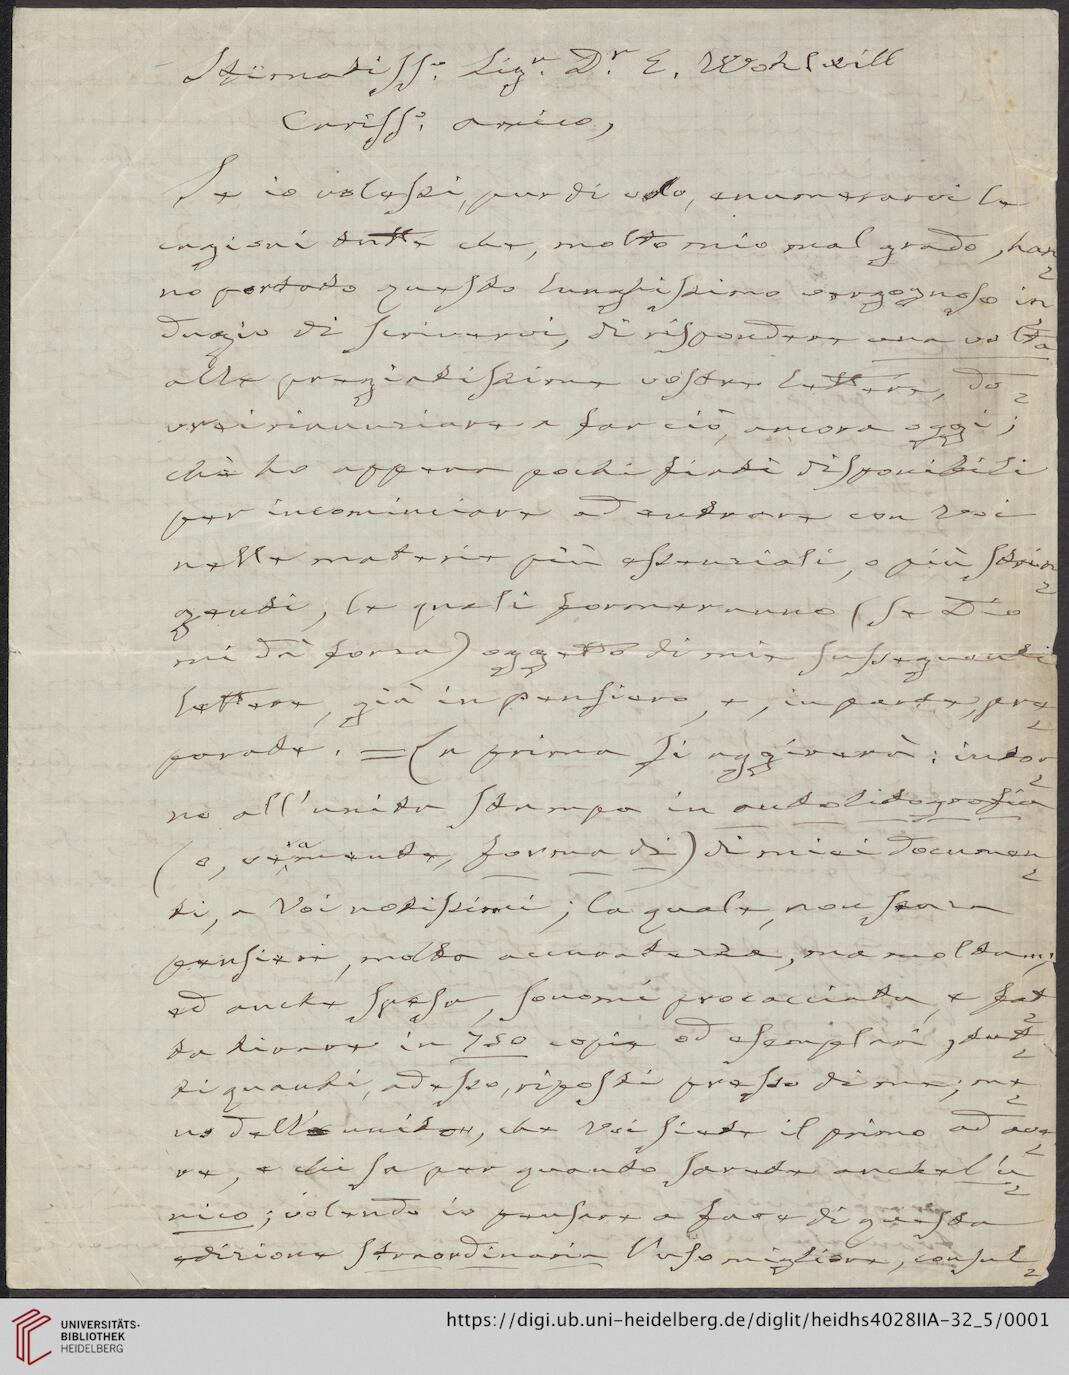 Stimatiss.º Sig.r D.r E. Wohlwill
Cariss.º amico,
Se io volessi, pur di volo, enumerarvi le
cagioni tutte che, molto mio mal grado, han=
no portato questo lunghissimo vergognoso in=
dugio di scrivervi, di rispondere una volta
alle pregiatissime vostre lettere, do=
vrei rinunziare a far ciò, ancora oggi;
chè ho appena pochi disponibili
per incominciare ad entrare con Voi
nelle materie più essenziali, o più strin=
genti, le quali formeranno (se Dio
mi dà forza) oggetto di mie susseguenti
lettere, già in pensiero, e, in parte, pre=
parate. = La prima si aggirerà: intor=
no all'unita stampa in autolitografia
(o, veramente, forma di) di miei documen=
ti, a Voi notissimi; la quale, non senza
pensieri, molta accuratezza, ma molta,
ed anche spesa, sonomi procacciata, e fat=
ta tirare in 750 copie od esemplari, tut=
ti quanti, adesso, riposti presso di me; me=
no dell'unito, che Voi siete il primo ad ave=
re, e chi sa per quanto sarete anche l'u=
nico; volendo io pensare a fare di questa
edizione straordinaria l'uso migliore, consul=
UNIVERSITÄTS-
BIBLIOTHEK
HEIDELBERG
https://digi.ub.uni-heidelberg.de/diglit/heidhs4028IIA-32_5/0001